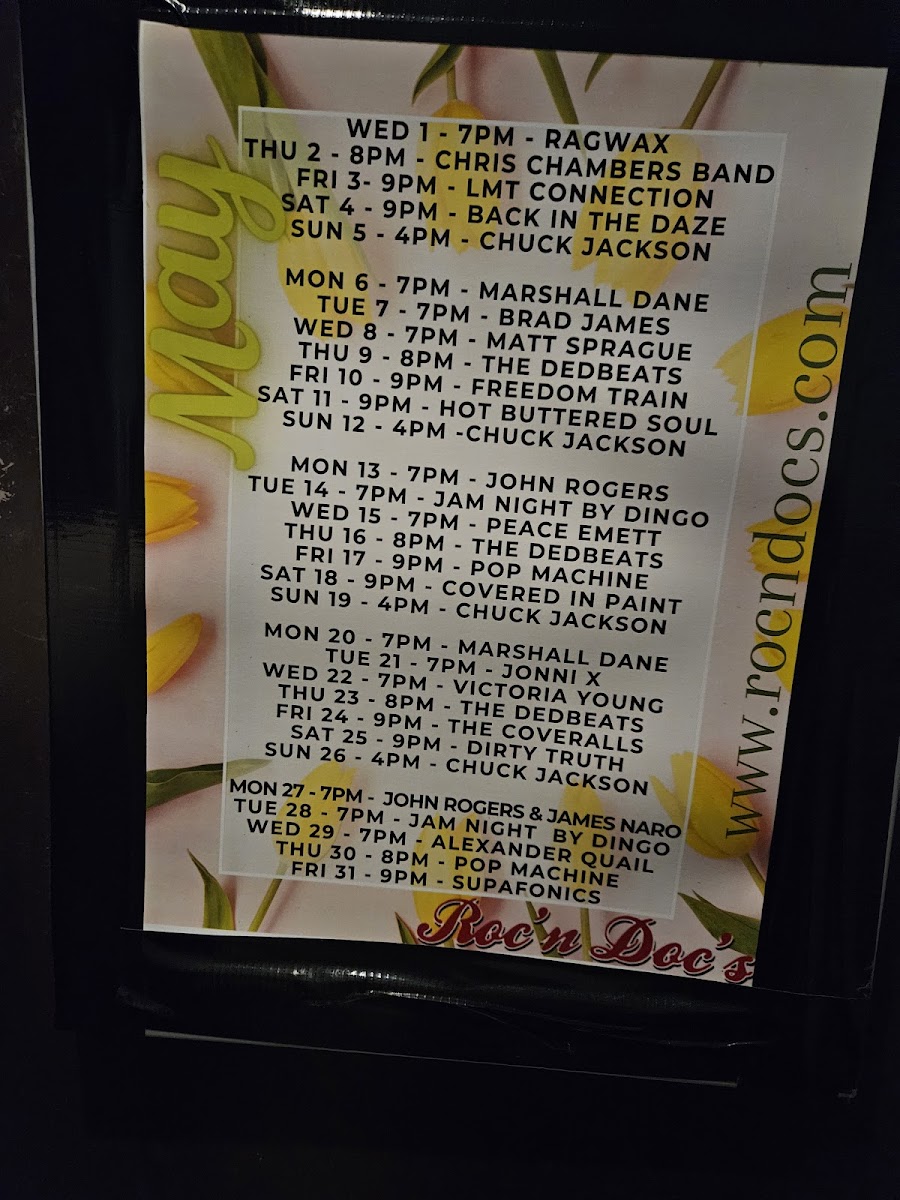 May
WED 1 - 7PM - RAGWAX
THU 2 - 8PM - CHRIS CHAMBERS BAND
FRI 3- 9PM - LMT CONNECTION
SAT 4 - 9PM - BACK IN THE DAZE
SUN 5 - 4PM - CHUCK JACKSON
MON 6 - 7PM - MARSHALL DANE
TUE 7 - 7PM - BRAD JAMES
WED 8 - 7PM - MATT SPRAGUE
THU 9 - 8PM - THE DEDBEATS
FRI 10 - 9PM - FREEDOM TRAIN
SAT 11 - 9PM - HOT BUTTERED SOUL
SUN 12 - 4PM -CHUCK JACKSON
MON 13 - 7PM - JOHN ROGERS
TUE 14 - 7PM - JAM NIGHT BY DINGO
WED 15 - 7PM - PEACE EMETT
THU 16 - 8PM - THE DEDBEATS
FRI 17 - 9PM - POP MACHINE
SAT 18 - 9PM - COVERED IN PAINT
SUN 19 - 4PM - CHUCK JACKSON
MON 20 - 7PM - MARSHALL DANE
TUE 21 - 7PM - JONNI X
WED 22 - 7PM - VICTORIA YOUNG
THU 23 - 8PM - THE DEDBEATS
FRI 24 - 9PM - THE COVERALLS
SAT 25 - 9PM - DIRTY TRUTH
SUN 26 - 4PM - CHUCK JACKSON
MON 27 - 7PM - JOHN ROGERS & JAMES NARO
TUE 28 - 7PM - JAM NIGHT BY DINGO
WED 29 - 7PM - ALEXANDER QUAIL
THU 30 - 8PM - POP MACHINE
FRI 31 - 9PM - SUPAFONICS
www.rocndocs.com
Roc'n Doc's